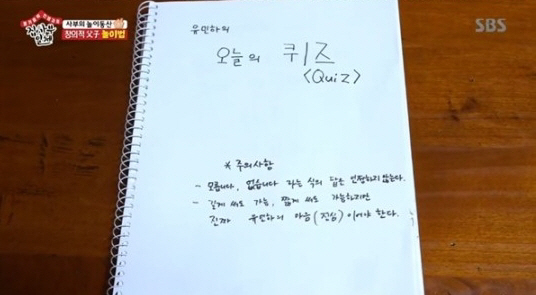 집사부일체
사부의 놀이동산
창의적 父子 놀이법
SBS
유민하의
오늘의 퀴즈
<Quiz>
* 주의사항
- 모릅니다, 없습니다 라는 식의 답은 인정하지 않는다.
- 길게 써도 가능, 짧게 써도 가능하지만
진짜 유민하의 마음(진심)이어야 한다.